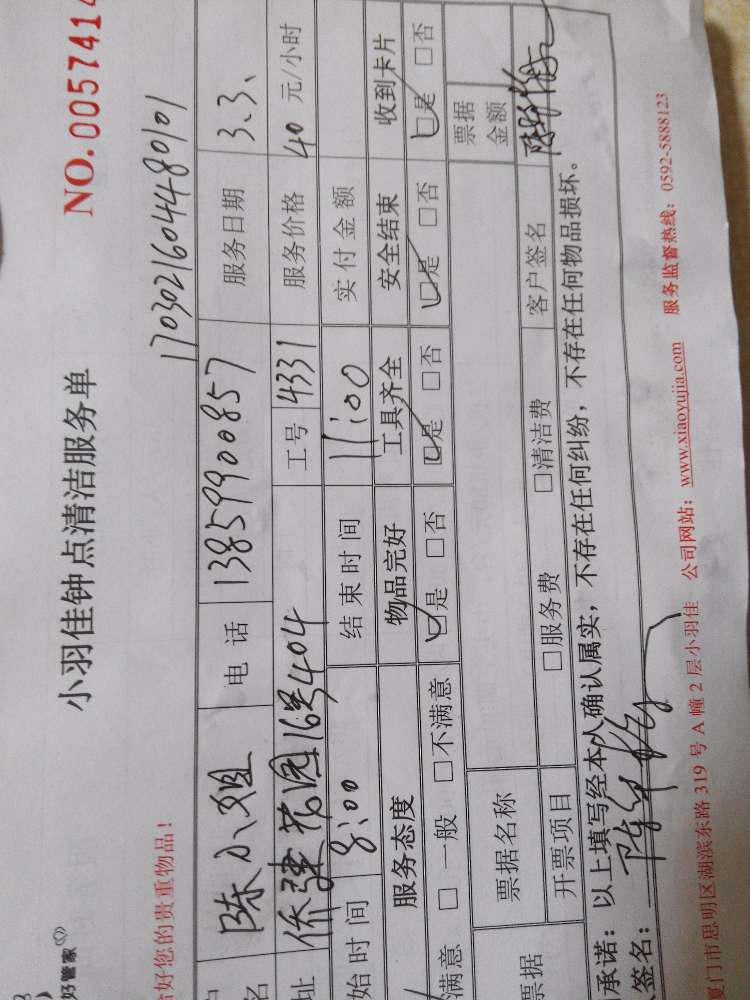 好管家
小羽佳钟点清洁服务单
NO.0057414
好您的贵重物品！
1703021604480101
名 陈小姐 电话 13859900857 服务日期 3.3、
址 侨建花园16号404 工号 4331 服务价格 40 元/小时
始时间 8:00 结束时间 11:00 实付金额
服务态度 物品完好 工具齐全 安全结束 收到卡片
满意 □ 一般 □不满意 □是 □否 □是 □否 □是 □否 □是 □否
票据 票据名称 票据金额
开票项目 □服务费 □清洁费 客户签名
承诺：以上填写经本人确认属实，不存在任何纠纷，不存在任何物品损坏。
签名：
厦门市思明区湖滨东路 319 号 A 幢 2 层小羽佳 公司网站：www.xiaoyujia.com 服务监督热线：0592-5888123